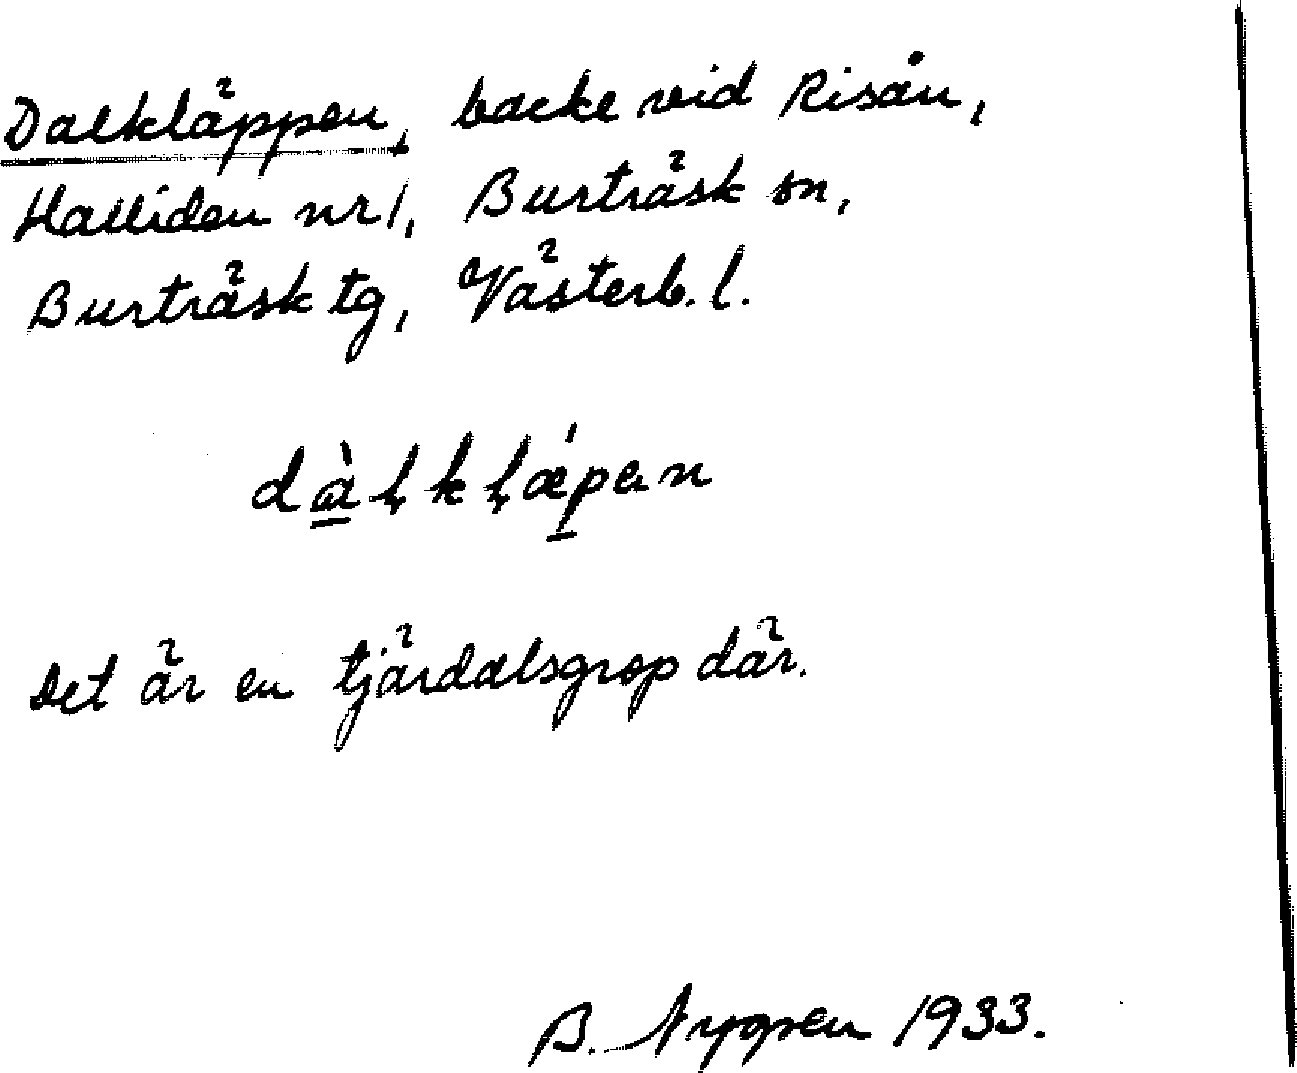 Dalkläppen, backe vid Risån,
Halliden nr 1, Burträsk sn,
Burträsk tg, Västerb. l.
dàļkļǽpen
Det är en tjärdalsgrop där.
B. Nygren 1933.